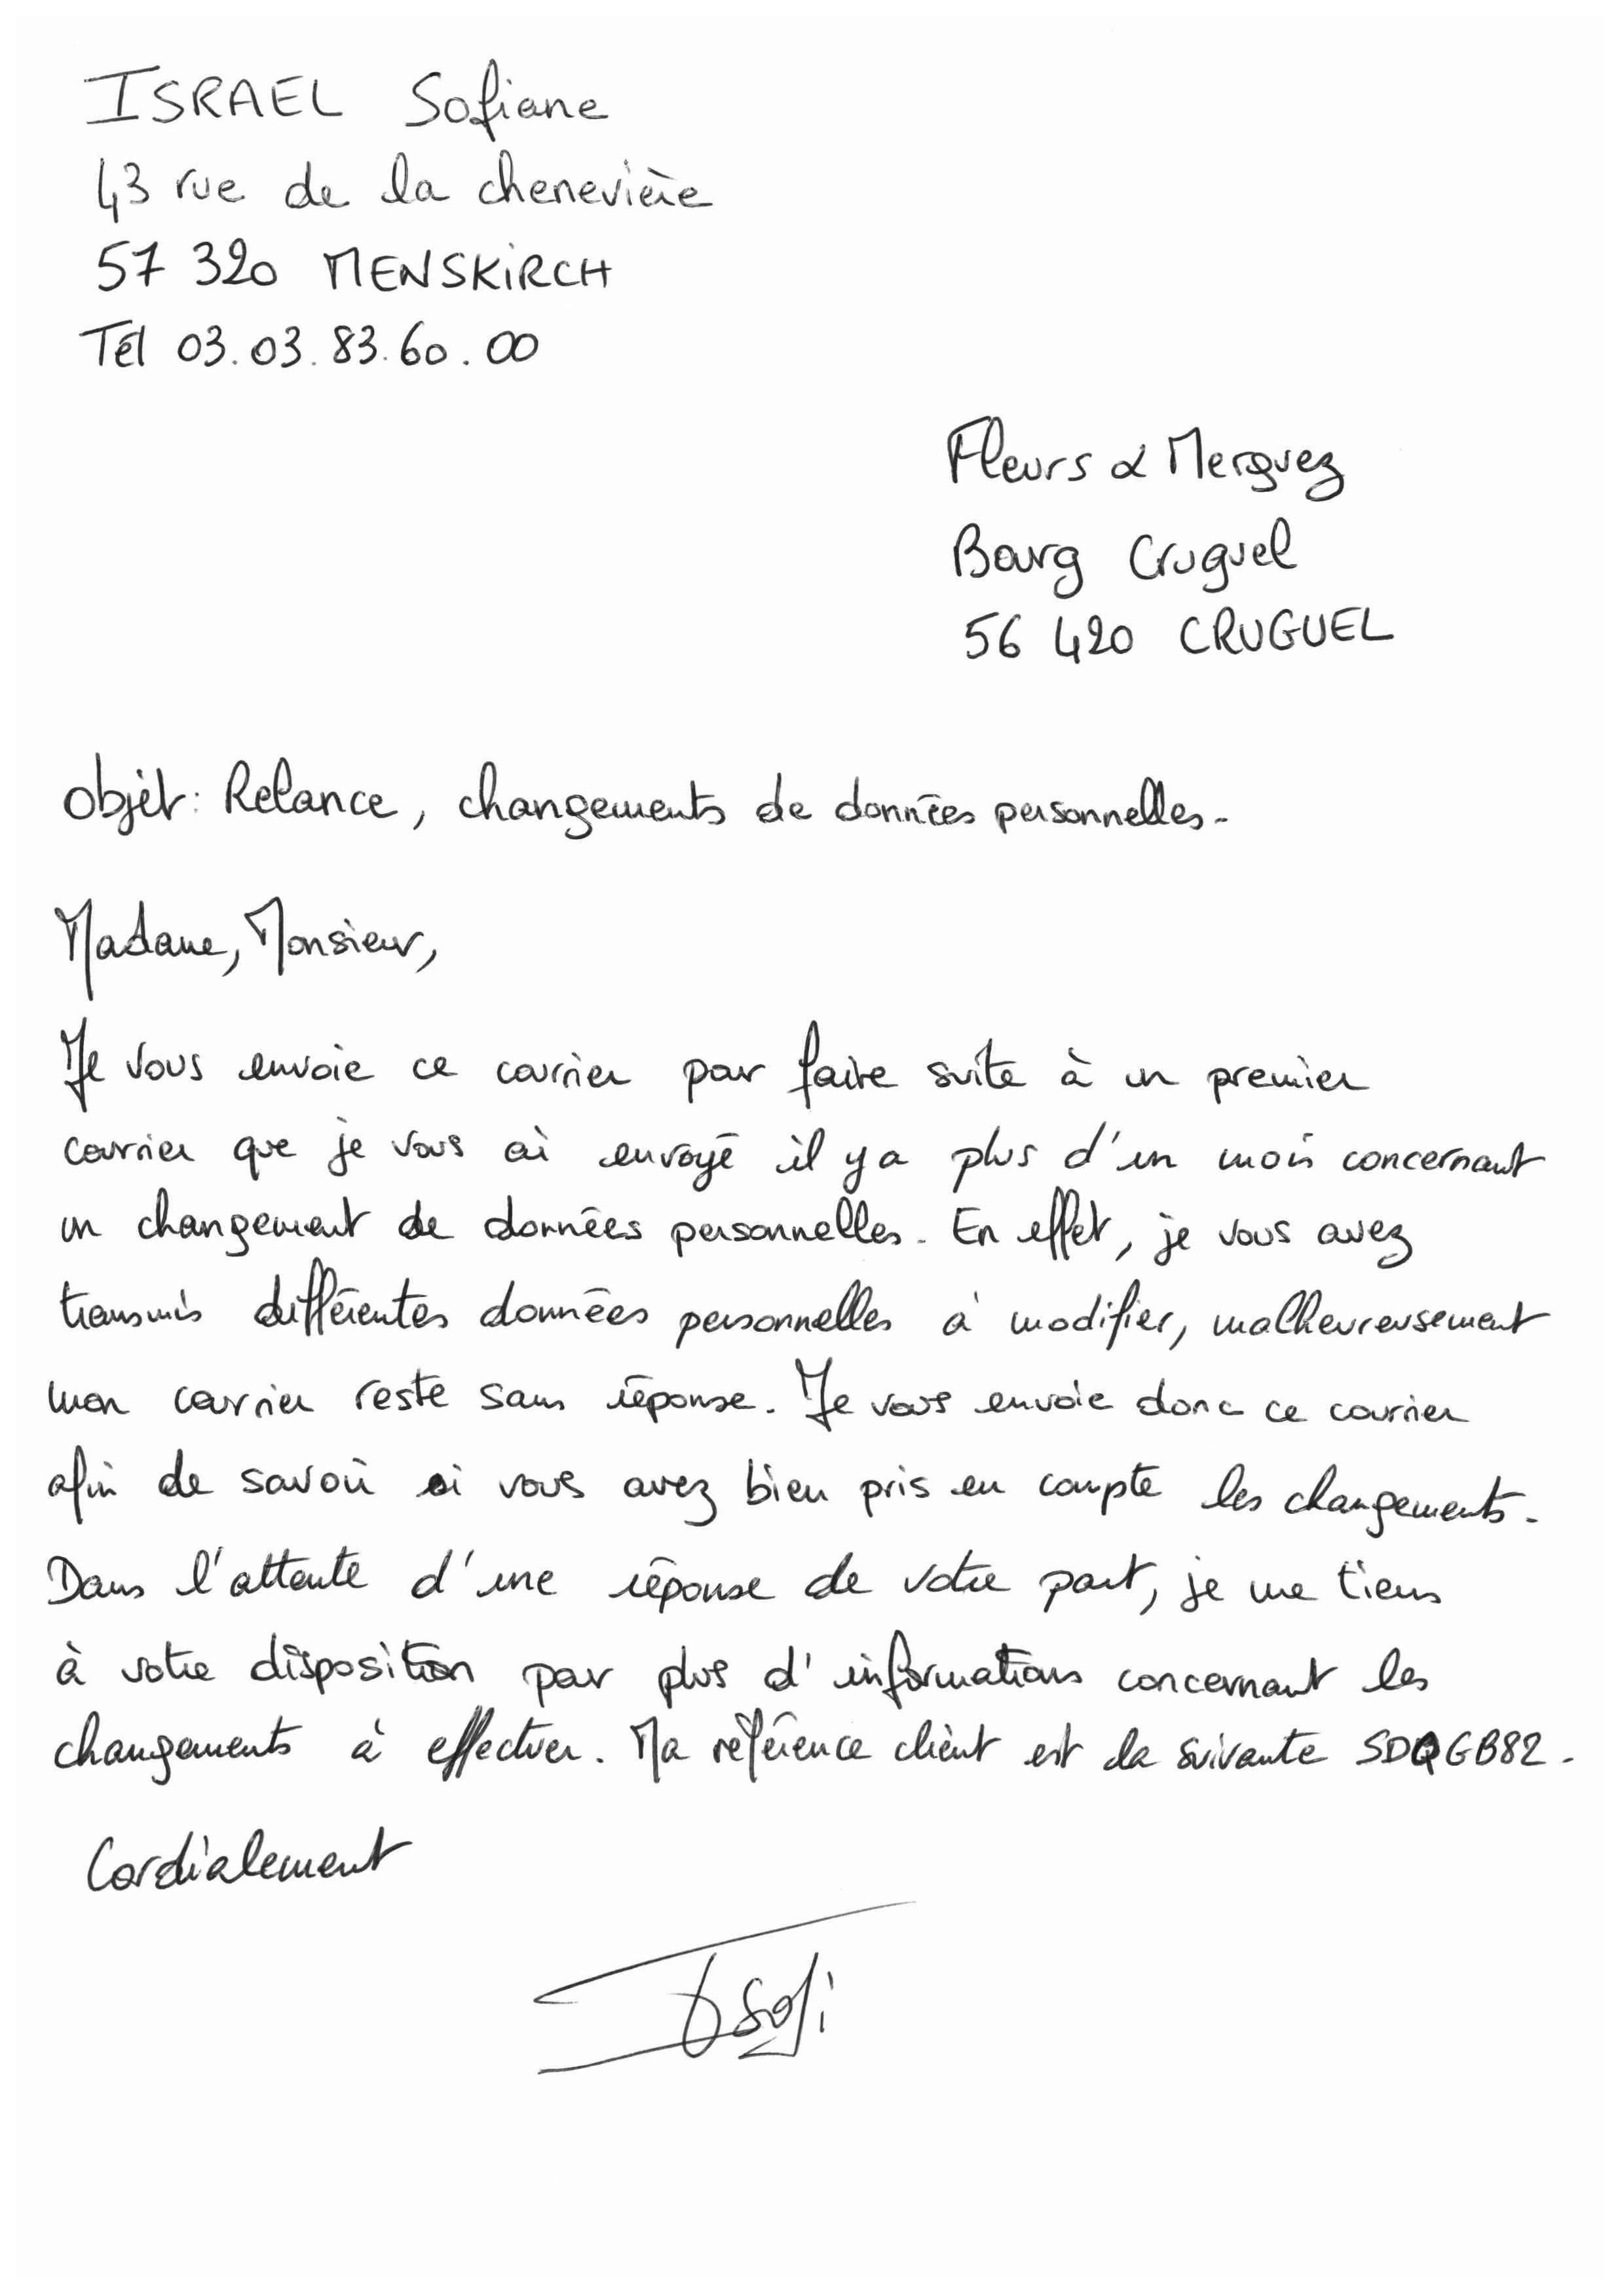 ISRAEL Sofiane
43 rue de la chenevière
57 320 MENSKIRCH
Tél 03.03.83.60.00
Fleurs & Merguez
Bourg Cruguel
56 420 CRUGUEL
Objet: Relance, changements de données personnelles.
Madame, Monsieur,
Je vous envoie ce courrier pour faire suite à un premier
courrier que je vous ai envoyé il y a plus d'un mois concernant
un changement de données personnelles. En effet, je vous avez
transmis différentes données personnelles à modifier, malheureusement
mon courrier reste sans réponse. Je vous envoie donc ce courrier
afin de savoir si vous avez bien pris en compte les changements.
Dans l'attente d'une réponse de votre part, je me tiens
à votre disposition pour plus d'informations concernant les
changements à effectuer. Ma référence client est la suivante SDQGB82.
Cordialement